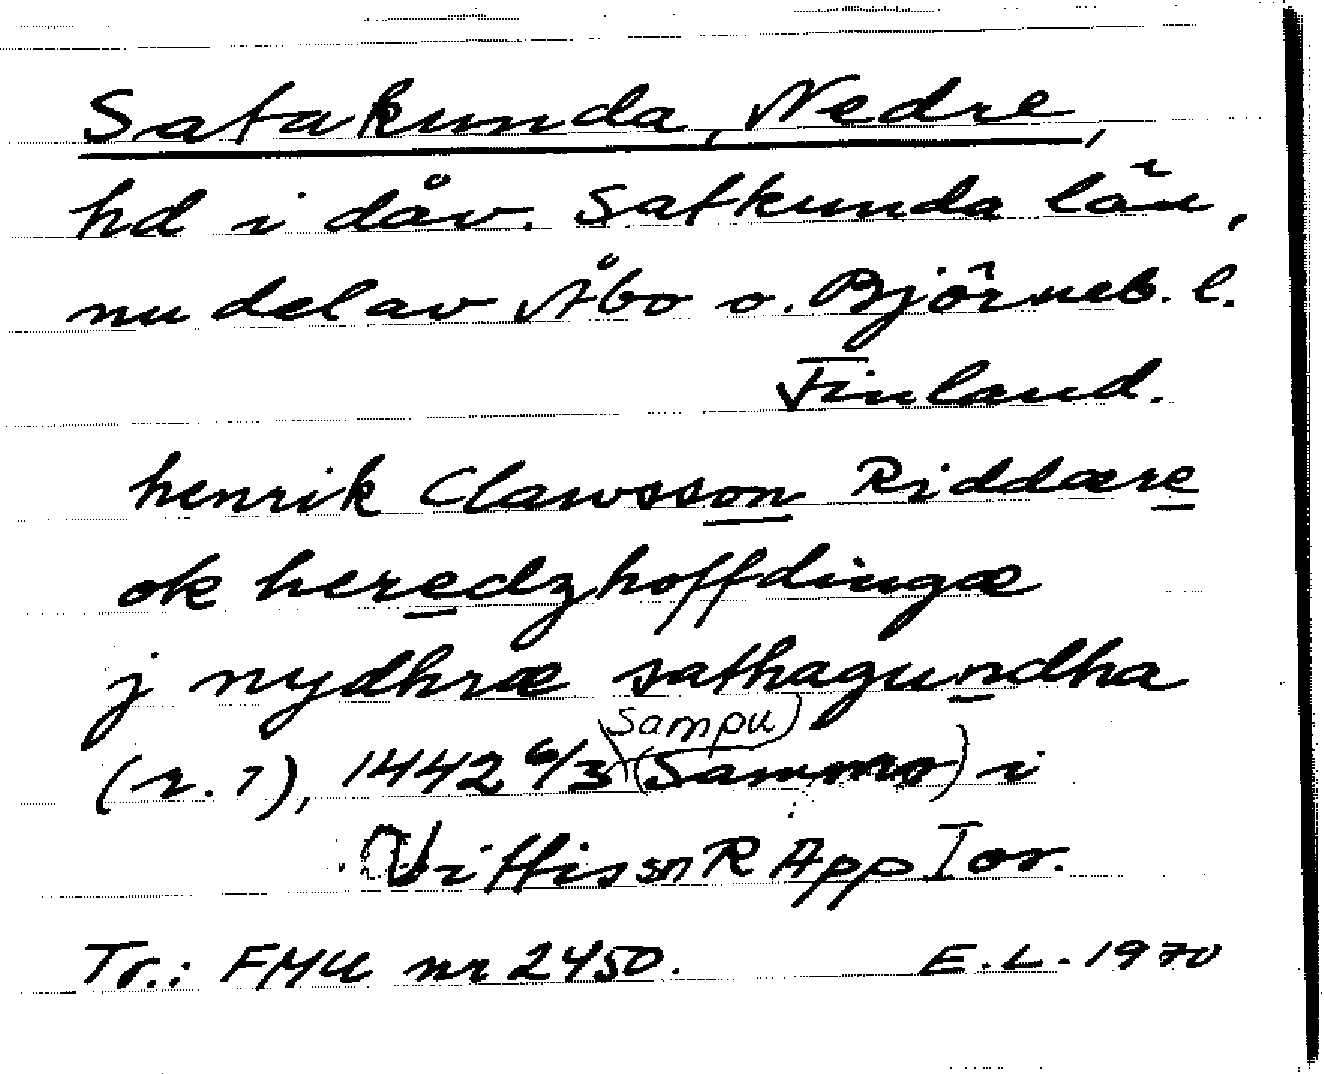 Satakunda, Nedre,
hd i dåv. Satkunda län,
nu del av Åbo o. Björneb. l.
Finland.
henrik Clawsson Riddære
ok heredzhoffdingæ
j nydhræ sathagundha
Sampu
(r. 7), 1442 6/3 (Sammo) i
Vittis sn R App I or.
Tr.: FMU nr 2450. E.L. 1970